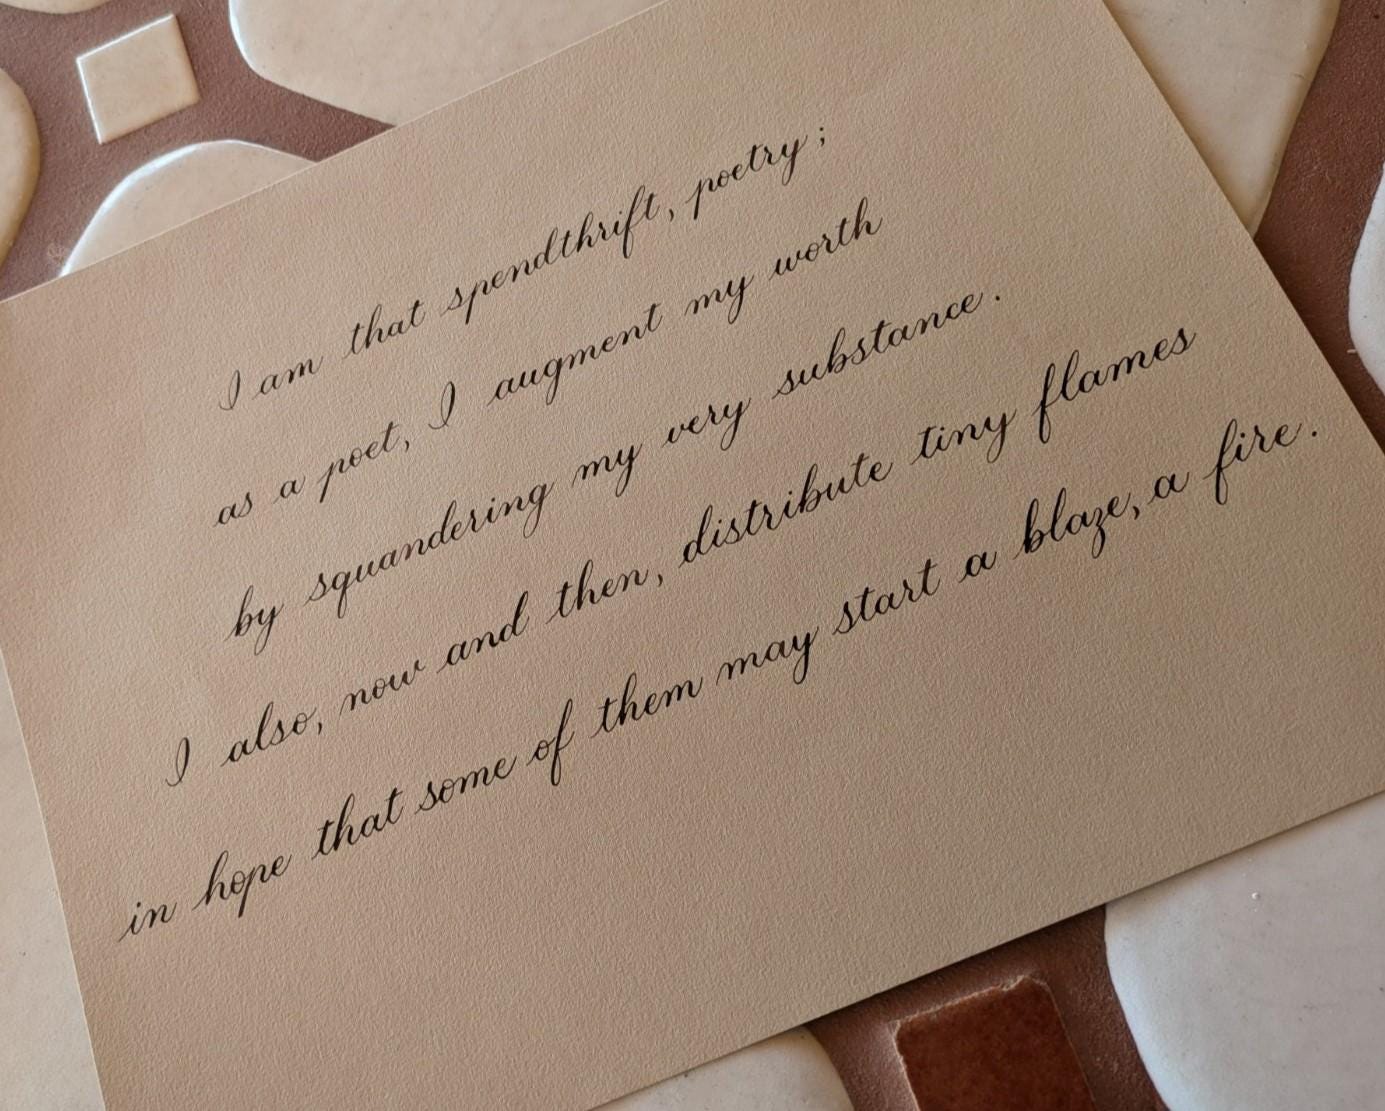 I am that spendthrift, poetry;
as a poet, I augment my worth
by squandering my very substance.
I also, now and then, distribute tiny flames
in hope that some of them may start a blaze, a fire.